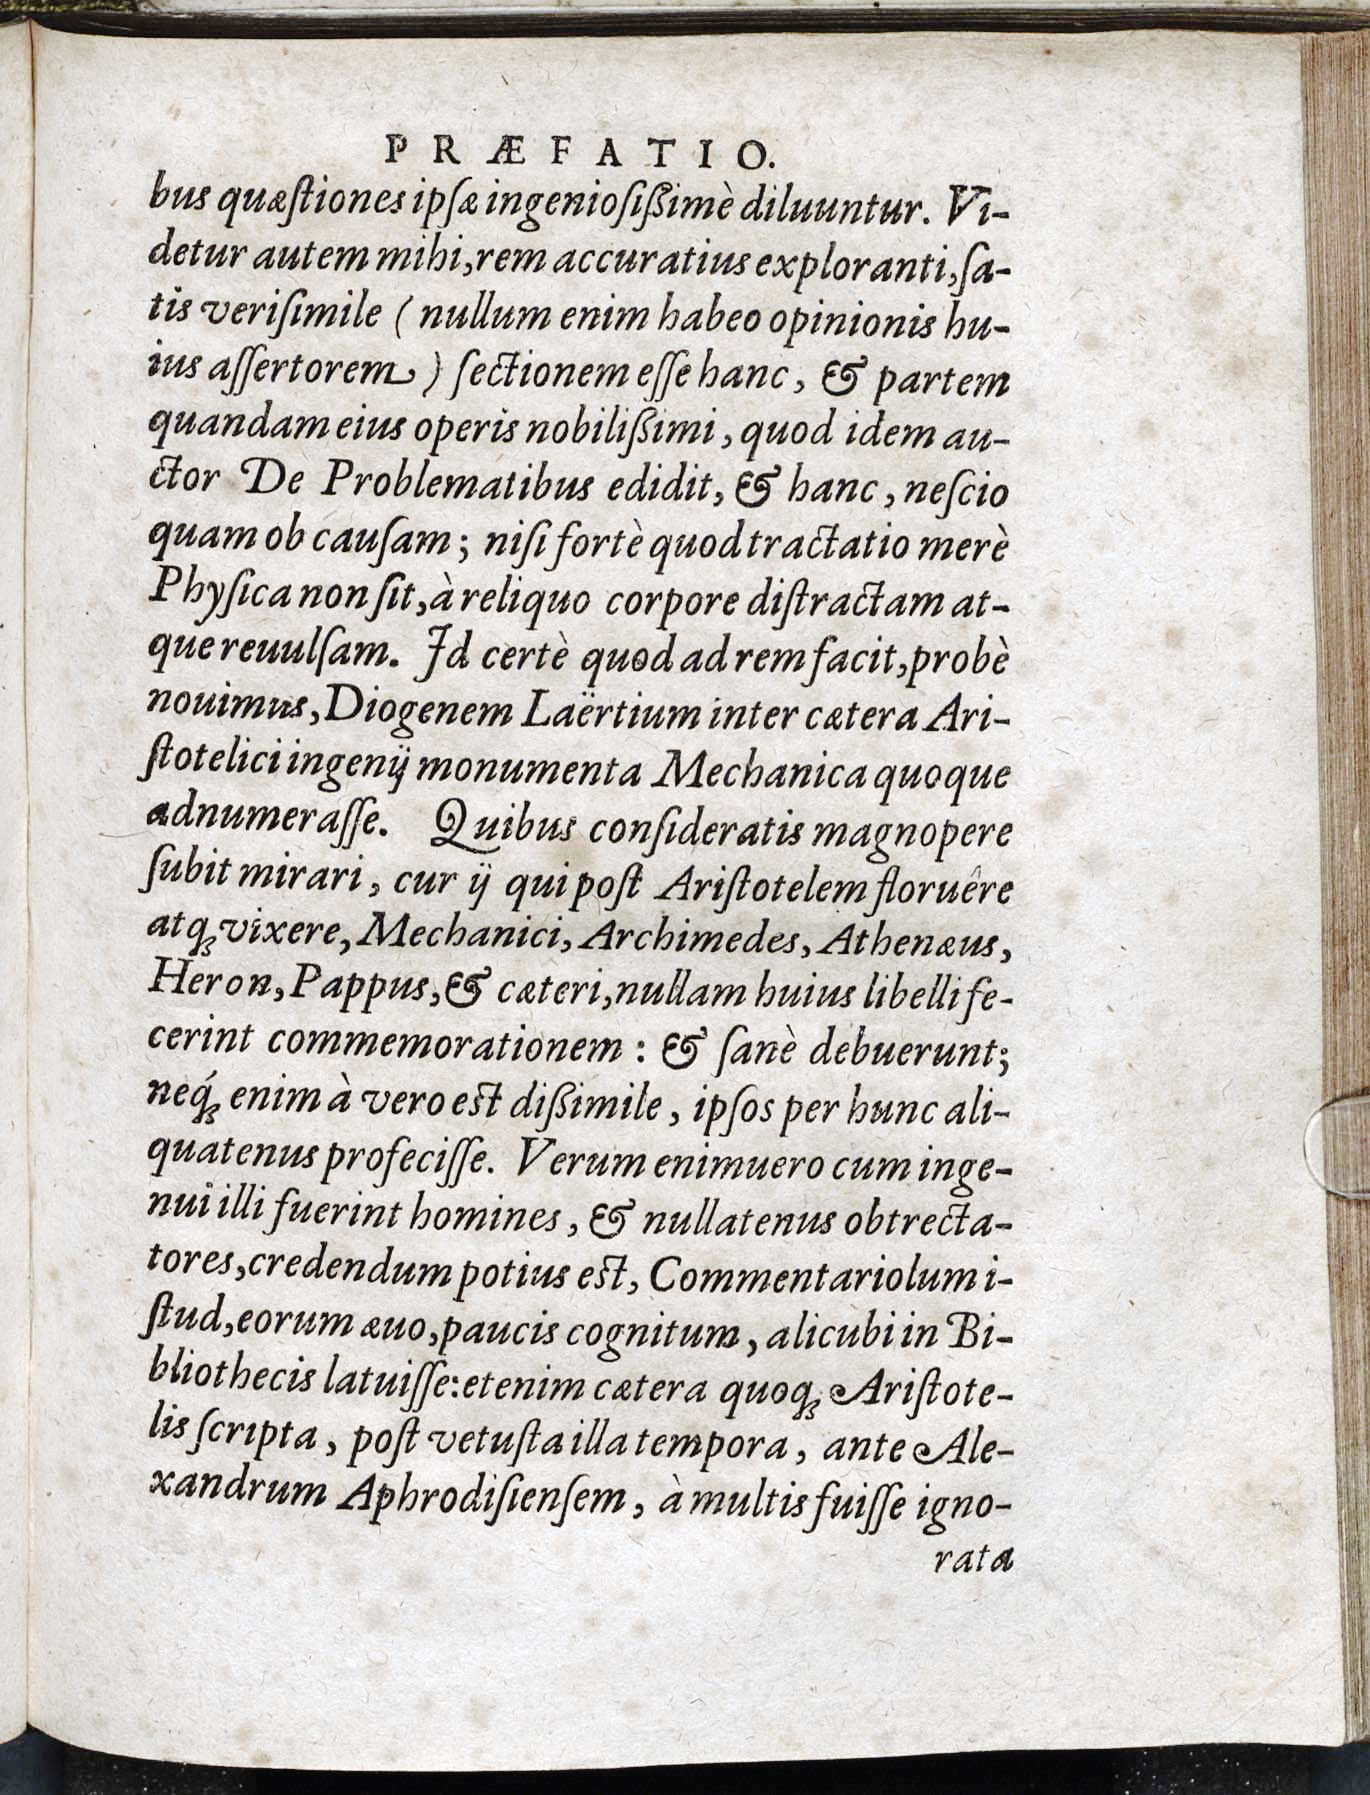 PRÆFATIO.
bus quæſtiones ipſæ ingenioſißimè diluuntur. Vi-
detur autem mihi, rem accuratius exploranti, ſa-
tis veriſimile ( nullum enim habeo opinionis hu-
ius aſſertorem ) ſectionem eſſe hanc, & partem
quandam eius operis nobilißimi, quod idem au-
ctor De Problematibus edidit, & hanc, neſcio
quam ob cauſam; niſi fortè quod tractatio merè
Phyſica non ſit, à reliquo corpore diſtractam at-
que reuulſam. Id certè quod ad rem facit, probè
nouimus, Diogenem Laërtium inter cætera Ari-
ſtotelici ingenij monumenta Mechanica quoque
adnumeraſſe. Quibus conſideratis magnopere
ſubit mirari, cur ij qui poſt Ariſtotelem floruêre
atq; vixere, Mechanici, Archimedes, Athenæus,
Heron, Pappus, & cæteri, nullam huius libelli fe-
cerint commemorationem : & ſanè debuerunt;
neq́; enim à vero est dißimile, ipſos per hunc ali-
quatenus profeciſſe. Verum enimuero cum inge-
nui illi fuerint homines, & nullatenus obtrecta-
tores, credendum potius est, Commentariolum i-
ſtud, eorum æuo, paucis cognitum, alicubi in Bi-
bliothecis latuiſſe: etenim cætera quoq; Ariſtote-
lis ſcripta, poſt vetuſta illa tempora, ante Ale-
xandrum Aphrodiſienſem, à multis fuiſſe igno-
rata